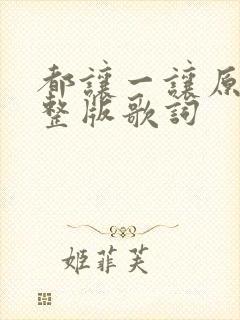 都讓一讓原
整版歌詞
姬菲芙